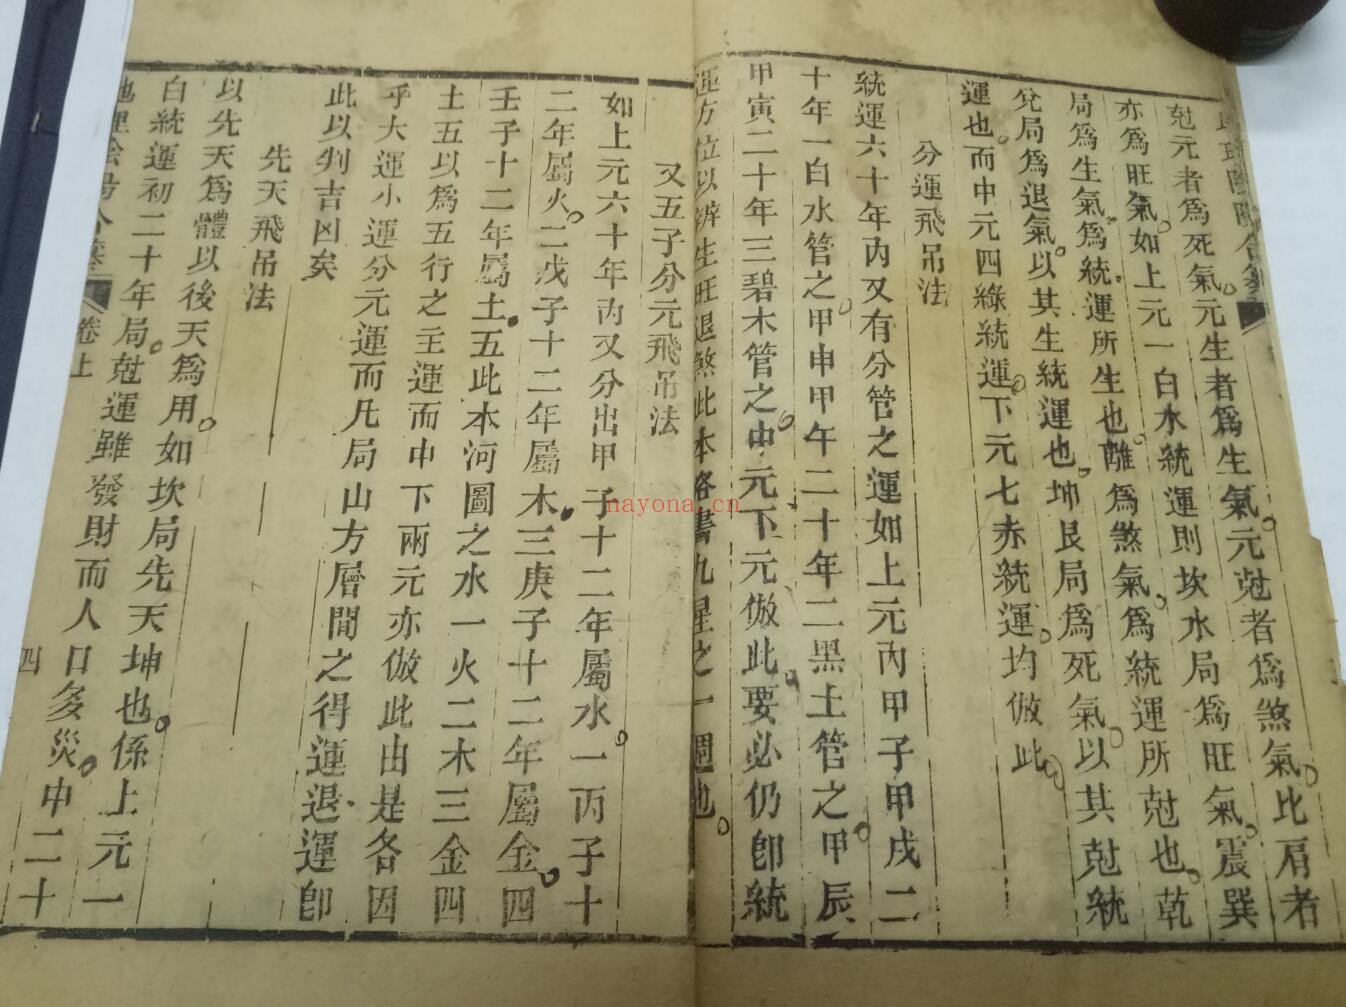 尅元者爲死氣元生者爲生氣元尅者爲煞氣比肩者
亦爲旺氣如上元一白水統運則坎水局爲旺氣震巽
局爲生氣爲統運所生也離爲煞氣爲統運所尅也乾
兌局爲退氣以其生統運也坤艮局爲死氣以其尅統
運也而中元四綠統運下元七赤統運均倣此
分運飛吊法
統運六十年內又有分管之運如上元內甲子甲戌二
十年一白水管之甲申甲午二十年二黑土管之甲辰
甲寅二十年三碧木管之中元下元倣此要必仍卽統
運方位以辨生旺退煞此本洛書九星之一週也
又五子分元飛吊法
如上元六十年內又分出甲子十二年屬水一丙子十
二年屬火二戊子十二年屬木三庚子十二年屬金四
壬子十二年屬土五此本河圖之水一火二木三金四
土五以爲五行之主運而中下兩元亦倣此由是各因
乎大運小運分元運而凡局山方層間之得運退運卽
此以判吉凶矣
先天飛吊法
以先天爲體以後天爲用如坎局先天坤也係上元一
白統運初二十年局尅運雖發財而人口多災中二十
卷上
四
nayona.cn